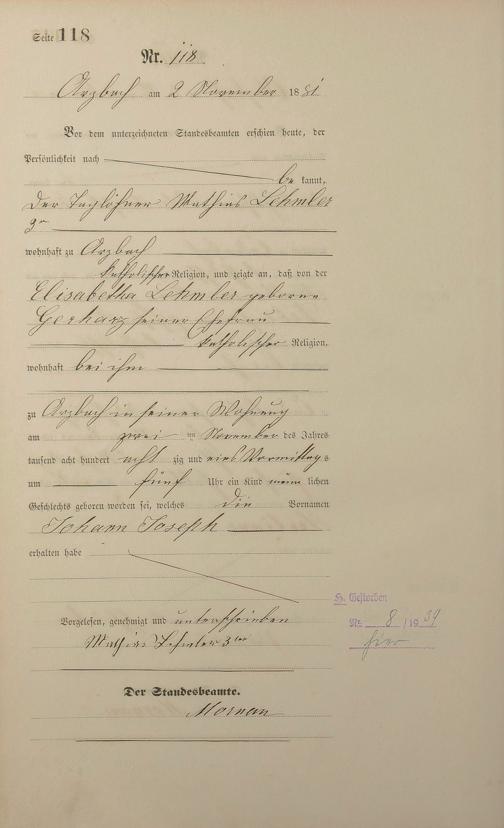 Seite 118
Nr. 118.
Arzbach am 2 November 1881
Vor dem unterzeichneten Standesbeamten erschien heute, der
Persönlichkeit nach
be kannt,
der Taglöhner Mathias Lehmler
3r
wohnhaft zu Arzbach
katholischer Religion, und zeigte an, daß von der
Elisabetha Lehmler geborene
Gerharz seiner Ehefrau
katholischer Religion,
wohnhaft bei ihm
zu Arzbach in seiner Wohnung
am zwei ten November des Jahres
tausend acht hundert acht zig und eins Vormittags
um fünf Uhr ein Kind männ lichen
Geschlechts geboren worden sei, welches die Vornamen
Johann Joseph
erhalten habe
Vorgelesen, genehmigt und unterschrieben
Mathias Lehmler 3ter
Der Standesbeamte.
H. Gestorben
Nr. 8 /1939
hier